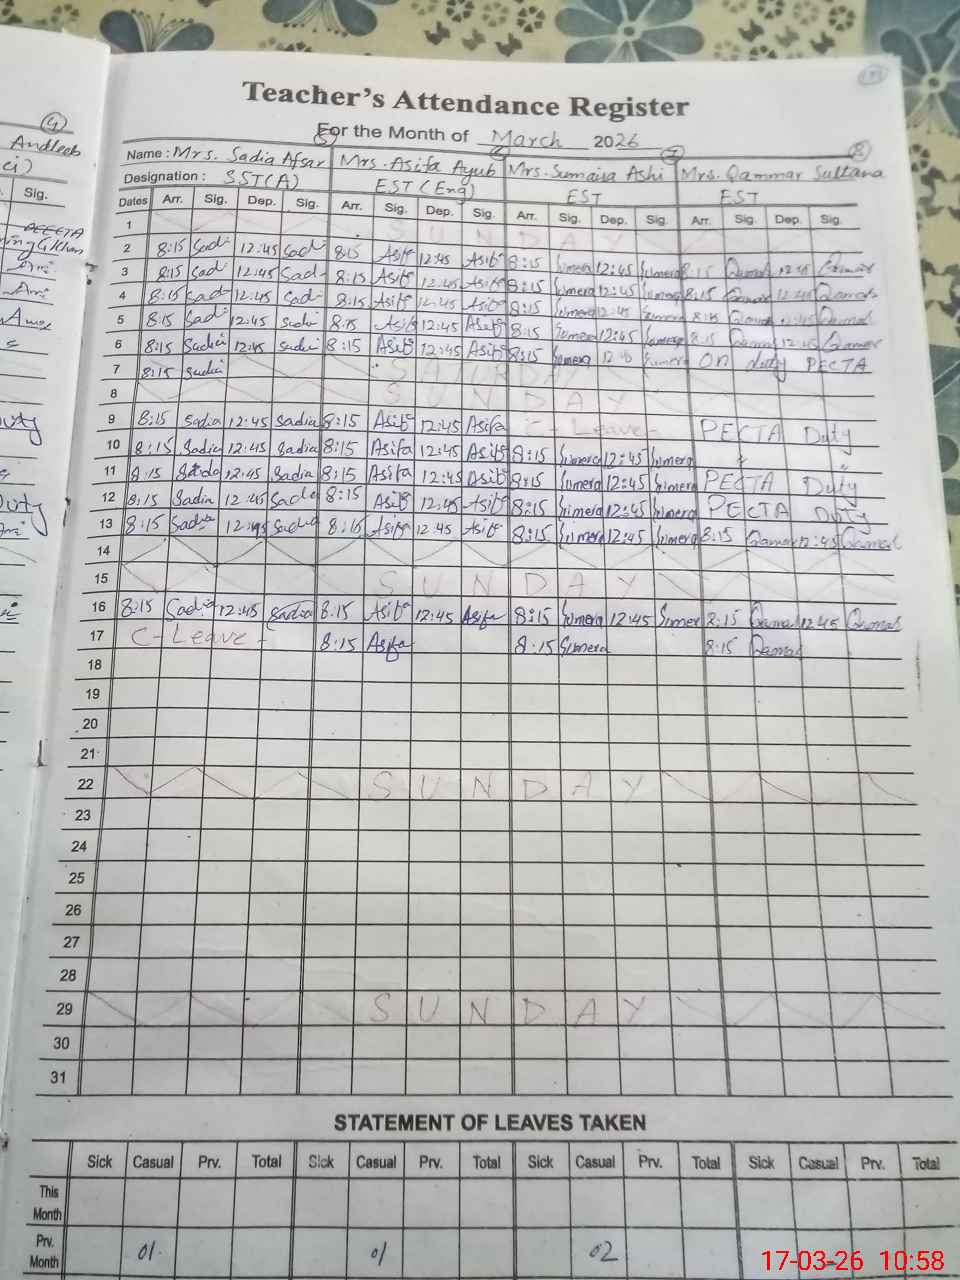 4
Andleeb
Sig.
Duty
171
Teacher's Attendance Register
For the Month of March 2026
5 6 7 8
Name: Mrs. Sadia Afsar Mrs. Asifa Ayub Mrs. Sumaira Ashi Mrs. Qammar Sultana
Designation: SST(A) EST (Eng) EST EST
Dates Arr. Sig. Dep. Sig. Arr. Sig. Dep. Sig. Arr. Sig. Dep. Sig. Arr. Sig. Dep. Sig.
1 SUNDAY
2 8:15 Sadi 12:45 Sadi 8:15 Asif 12:45 Asif 8:15 Sumera 12:45 Sumera 8:15 Qamar 12:45 Qamar
3 8:15 Sadi 12:45 Sadi 8:15 Asif 12:45 Asif 8:15 Sumera 12:45 Sumera 8:15 Qamar 12:45 Qamar
4 8:15 Sadi 12:45 Sadi 8:15 Asif 12:45 Asif 8:15 Sumera 12:45 Sumera 8:15 Qamar 12:45 Qamar
5 8:15 Sadi 12:45 Sadi 8:15 Asif 12:45 Asif 8:15 Sumera 12:45 Sumera 8:15 Qamar 12:45 Qamar
6 8:15 Sadia 12:45 Sadia 8:15 Asif 12:45 Asif 8:15 Sumera Sumera ON duty PECTA
7 8:15 Sadia SATURDAY
8 SUNDAY
9 8:15 Sadia 12:45 Sadia 8:15 Asif 12:45 Asifa C-Leave- PECTA Duty
10 8:15 Sadia 12:45 Sadia 8:15 Asifa 12:45 Asif 8:15 Sumera 12:45 Sumera " "
11 8:15 Sadia 12:45 Sadia 8:15 Asifa 12:45 Asif 8:15 Sumera 12:45 Sumera PECTA Duty
12 8:15 Sadia 12:45 Sadia 8:15 Asif 12:45 Asif 8:15 Sumera 12:45 Sumera PECTA Duty
13 8:15 Sadia 12:45 Sadia 8:15 Asif 12:45 Asif 8:15 Sumera 12:45 Sumera 8:15 Qamar 12:45 Qamar
14
15 SUNDAY
16 8:15 Sadia 12:45 Sadia 8:15 Asif 12:45 Asifa 8:15 Sumera 12:45 Sumer 8:15 Qamar 12:45 Qamar
17 C-Leave- 8:15 Asifa 8:15 Sumera 8:15 Qamar
18
19
20
21
22 SUNDAY
23
24
25
26
27
28
29 SUNDAY
30
31
STATEMENT OF LEAVES TAKEN
Sick Casual Prv. Total Sick Casual Prv. Total Sick Casual Prv. Total Sick Casual Prv. Total
This Month
Prv. Month 01 01 02
17-03-26 10:58